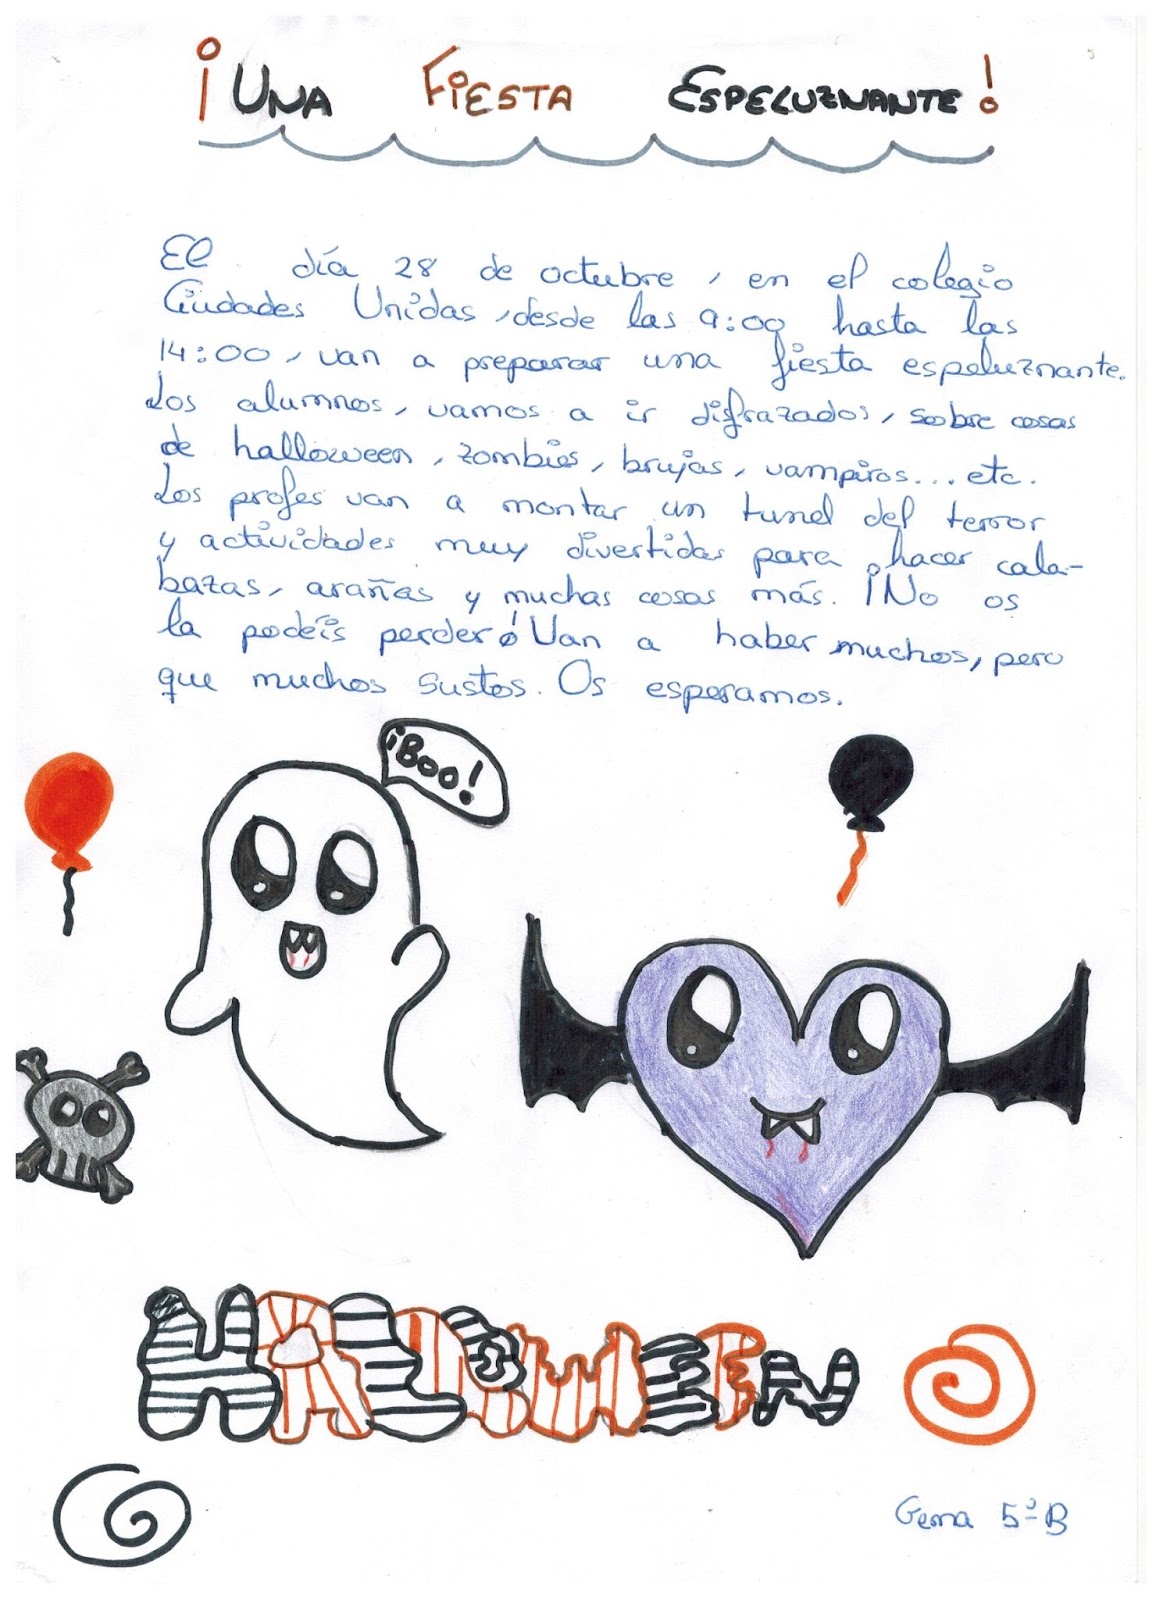 ¡UNA FIESTA ESPELUZNANTE!
El día 28 de octubre, en el colegio
Ciudades Unidas, desde las 9:00 hasta las
14:00, van a preparar una fiesta espeluznante.
Los alumnos, vamos a ir disfrazados, sobre cosas
de halloween, zombies, brujas, vampiros... etc.
Los profes van a montar un tunel del terror
y actividades muy divertidas para hacer cala-
bazas, arañas y muchas cosas más. ¡No os
la podéis perder! Van a haber muchos, pero
que muchos sustos. Os esperamos.
¡BOO!
HALLOWEEN
Gema 5º B